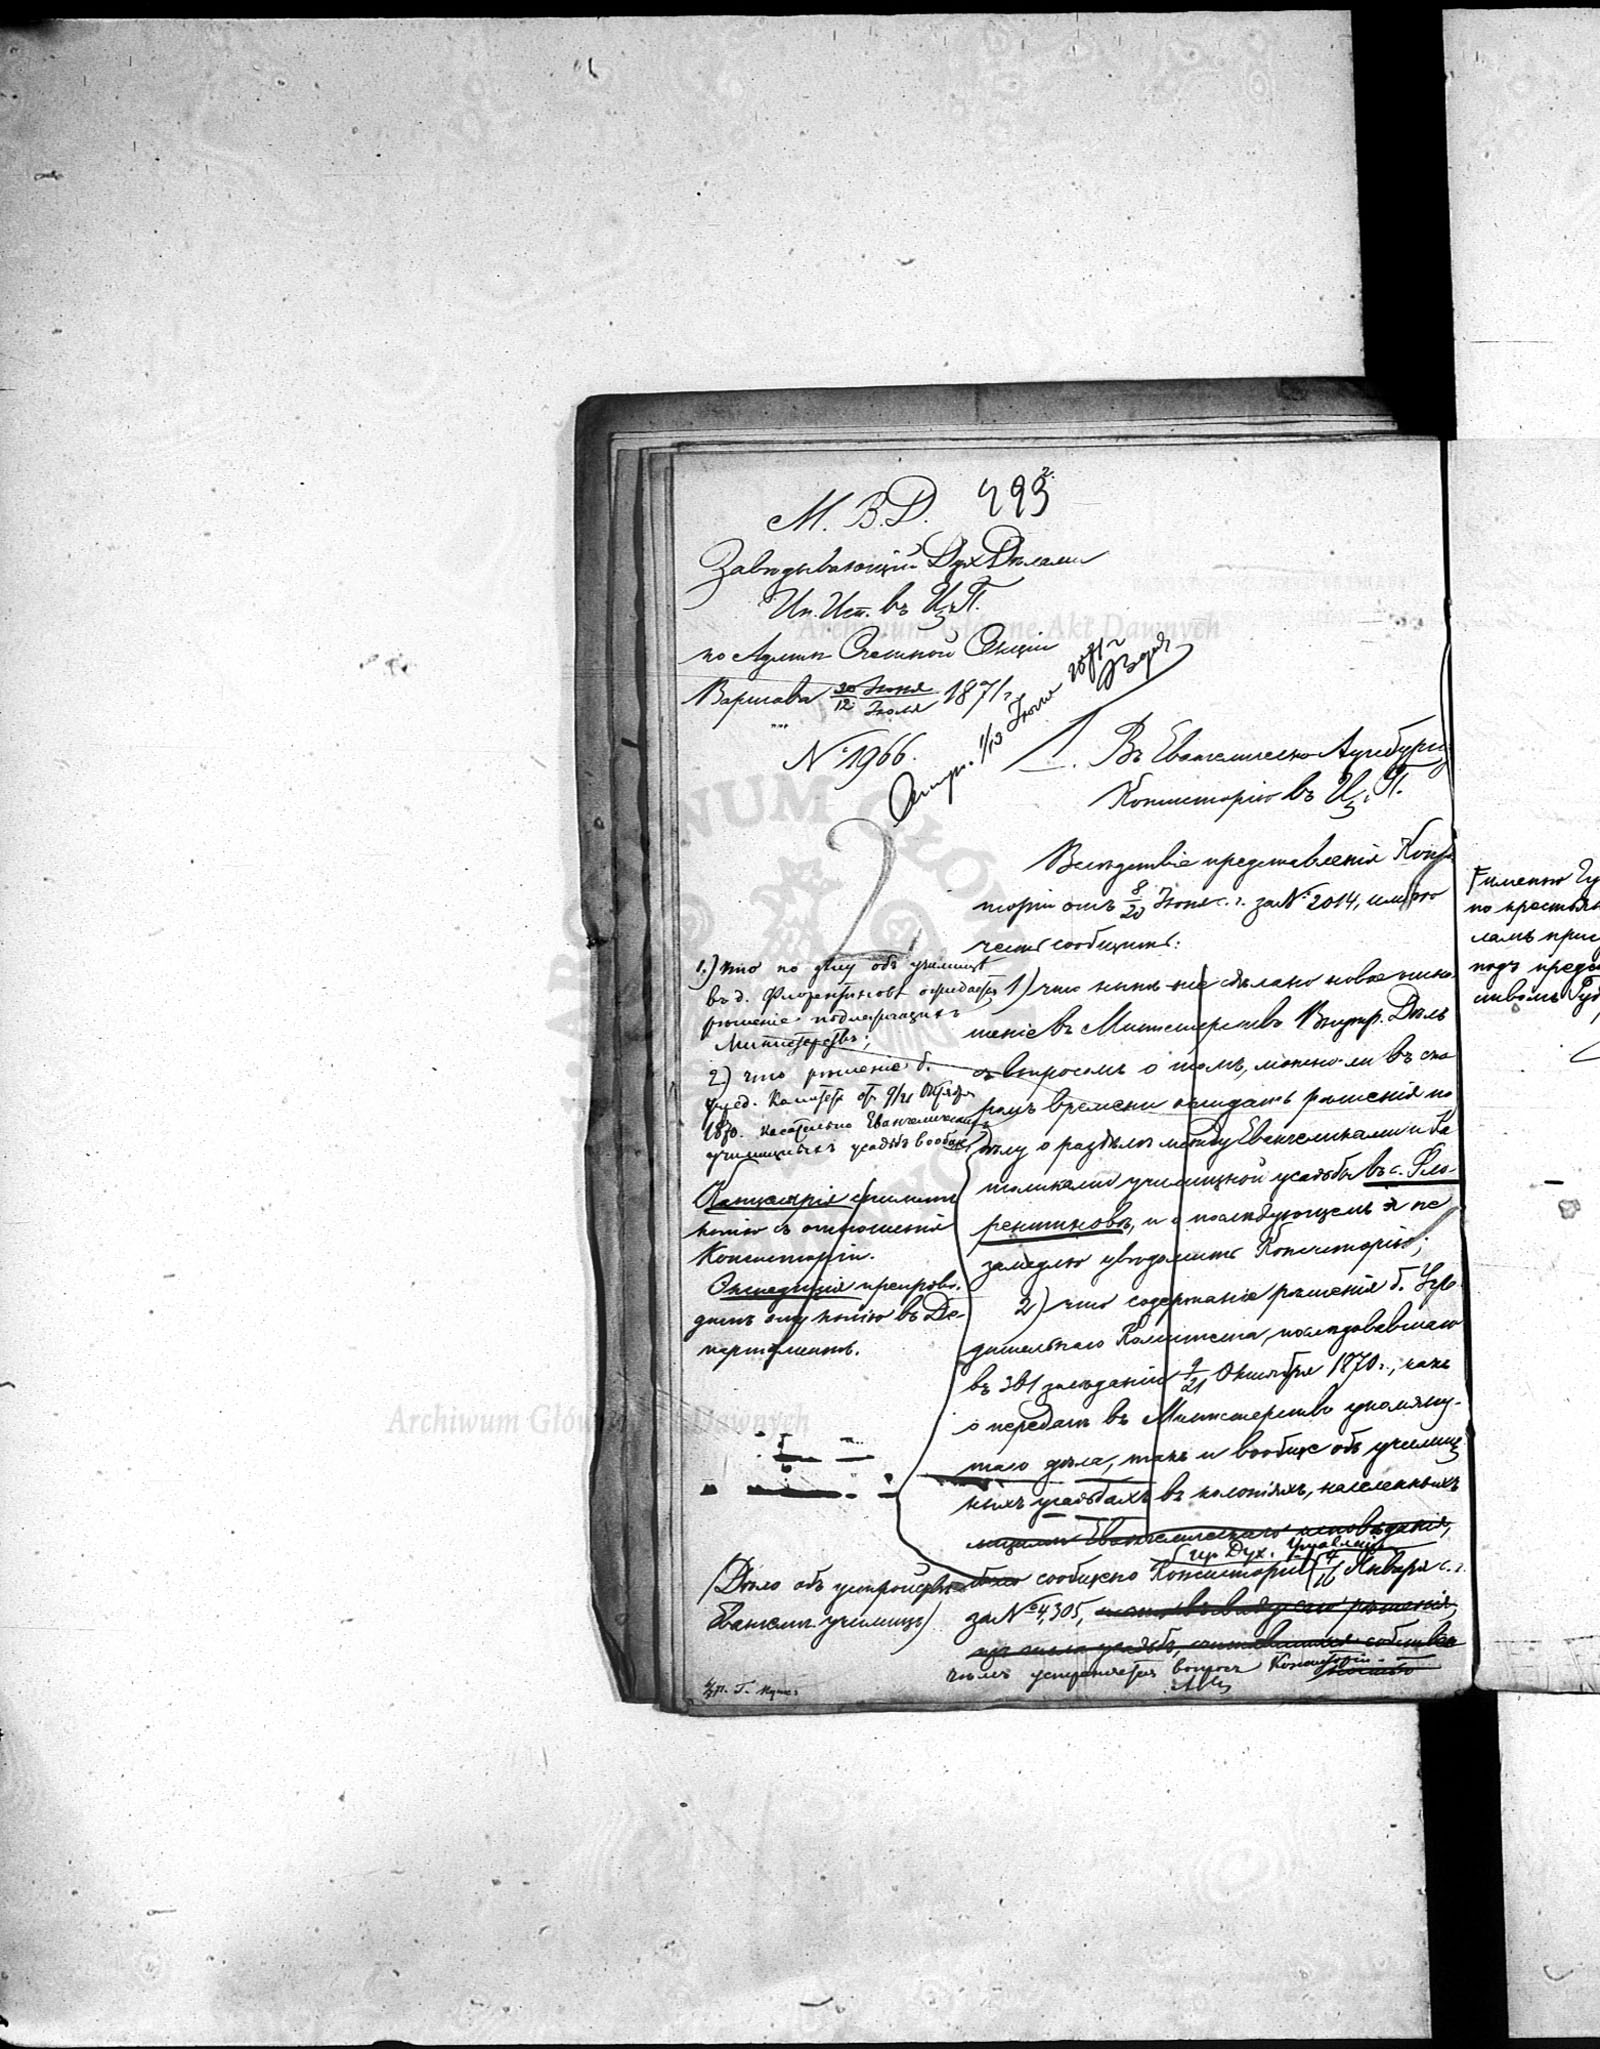 493
М. В. Д.
Заведывающій Дух Дѣлами
Ин. Исп. въ Ц. П.
по Админ Счетной Секціи
Варшава 30/12 Іюня/Іюля 1871 г.
№ 1966.
1/13 Іюля
Въ Евангелическо Аугсбургс
Консисторію въ Ц. П.
Вслѣдствіе представленія Конси
торіи отъ 8/20 Іюня с. г. за № 2014, имѣю
честь сообщить:
1) что нынѣ же сдѣлано новое сно
шеніе въ Министерство Внутр. Дѣлъ
съ вопросомъ о томъ, можно-ли въ ско
ромъ времени ожидать рѣшенія по
дѣлу о раздѣлѣ между Евангеликами и Ка
толиками училищной усадьбы въ с. Фло-
рентиновѣ, и о послѣдующемъ я не
замедлю увѣдомить Консисторію;
2) что содержаніе рѣшенія б. Учре-
дительнаго Комитета, послѣдовавшаго
въ 361 засѣданіи 9/21 Октября 1870 г., какъ
о передачѣ въ Министерство упомяну-
таго дѣла, такъ и вообще объ училищ
ныхъ усадьбахъ въ колоніяхъ, населенныхъ
лицами Евангелическаго исповѣданія,
Дух. Управленія
было сообщено Консисторіи 4/16 Января с. г.
за № 4,305,
чѣмъ устраняется вопросъ Консисторіи
1.) что по дѣлу объ училищѣ
въ д. Флорентиновѣ ожидается
рѣшеніе подлежащихъ
Министерствъ;
2) что рѣшеніе б.
Учред. Комитета отъ 9/21 Октября
1870. касательно Евангелическихъ
училищныхъ усадьбъ вообще
Канцелярія
копію съ отношенія
Консисторіи.
Экспедиція препрово-
дитъ эту копію въ Де-
партаментъ.
(Дѣло объ устройствѣ
Евангел. училищъ)
именно
по крестьян
ламъ
подъ предс